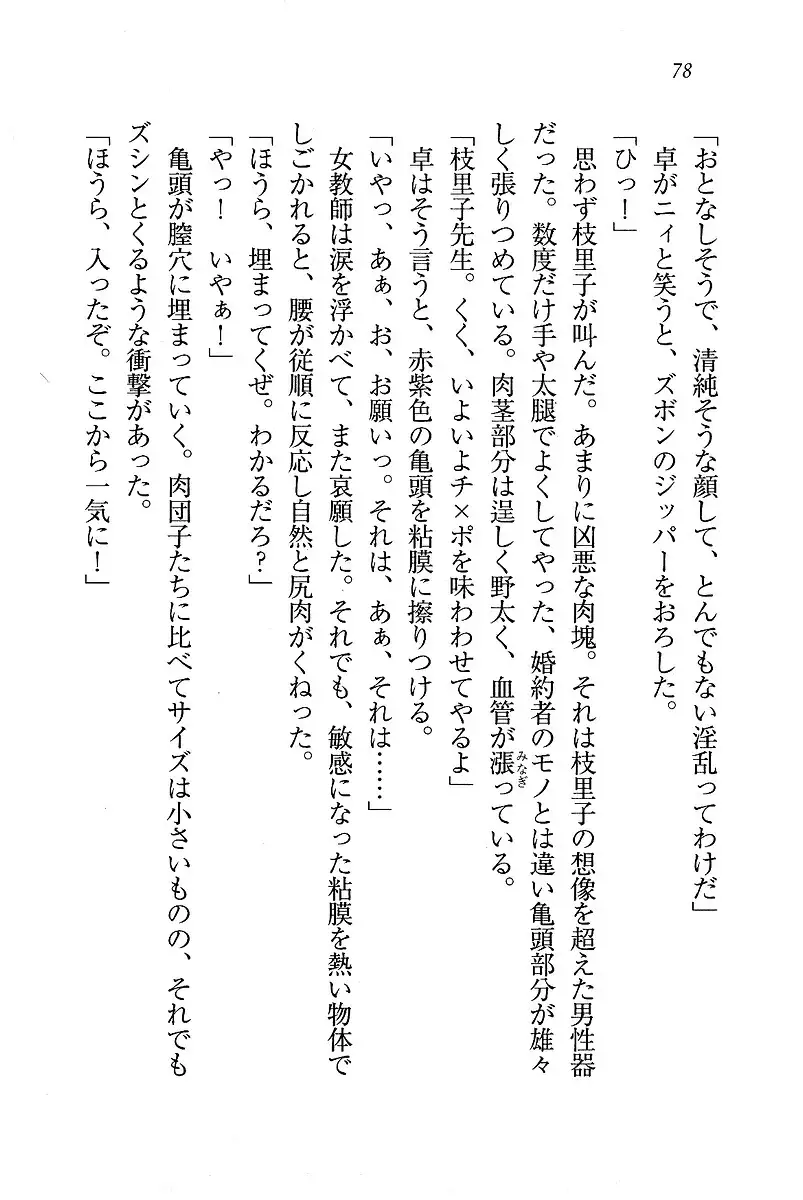 78
「おとなしそうで、清純そうな顔して、とんでもない淫乱ってわけだ」
卓がニィと笑うと、ズボンのジッパーをおろした。
「ひっ！」
思わず枝里子が叫んだ。あまりに凶悪な肉塊。それは枝里子の想像を超えた男性器
だった。数度だけ手や太腿でよくしてやった、婚約者のモノとは違い亀頭部分が雄々
しく張りつめている。肉茎部分は逞しく野太く、血管が漲っている。
みなぎ
「枝里子先生。くく、いよいよチ×ポを味わわせてやるよ」
卓はそう言うと、赤紫色の亀頭を粘膜に擦りつける。
「いやっ、あぁ、お、お願いっ。それは、あぁ、それは……」
女教師は涙を浮かべて、また哀願した。それでも、敏感になった粘膜を熱い物体で
しごかれると、腰が従順に反応し自然と尻肉がくねった。
「ほうら、埋まってくぜ。わかるだろ？」
「やっ！　いやぁ！」
亀頭が膣穴に埋まっていく。肉団子たちに比べてサイズは小さいものの、それでも
ズシンとくるような衝撃があった。
「ほうら、入ったぞ。ここから一気に！」